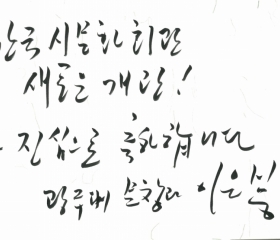 한국 시문화회관
새로운 개관!
진심으로 축하합니다
광주대 문창과 이은봉